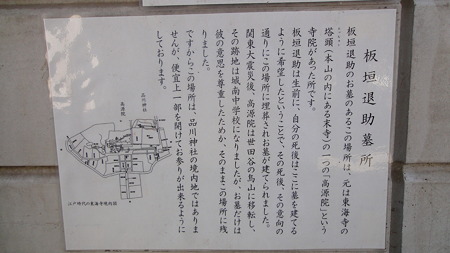 板垣退助墓所
板垣退助のお墓のあるこの場所は、元は東海寺の
塔頭（本山の内にある末寺）の一つの「高源院」という
寺院があった所です。
板垣退助は生前に、自分の死後はここに墓を建てる
ように希望したということで、その死後、その意向の
通りにこの場所に埋葬されお墓が建てられました。
関東大震災後、高源院は世田谷の烏山に移転し、
その跡地は城南中学校になりましたが、お墓だけは
彼の意思を尊重したためか、そのままこの場所に残
りました。
ですからこの場所は、品川神社の境内地ではありま
せんが、便宜上一部を開けてお参りが出来るように
しております。
品川神社
高源院
江戸時代の東海寺境内図